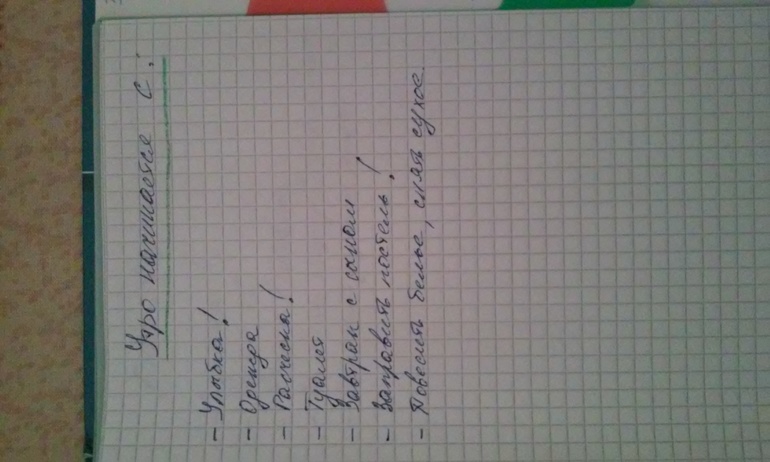 Утро начинается с:
- Улыбка!
- Одежда
- Расческа!
- Туалет
- Завтрак с сыном
- Заправить постель!
- Повесить белье, снять сухое.